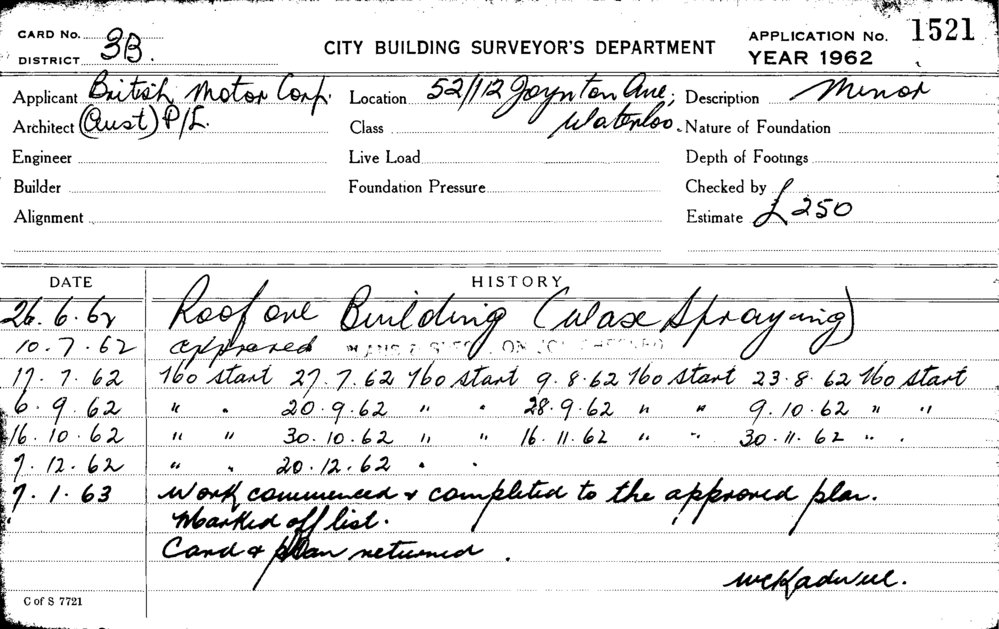 CARD No. 3B.
DISTRICT
CITY BUILDING SURVEYOR'S DEPARTMENT
APPLICATION No. 1521
YEAR 1962
Applicant British Motor Corp. Location 52/112 Joynton Ave; Description Minor
Architect (Aust) P/L. Class Waterloo. Nature of Foundation
Engineer Live Load Depth of Footings
Builder Foundation Pressure Checked by
Alignment Estimate £250
DATE HISTORY
26.6.62 Roof over Building (Wax Spraying)
10.7.62 approved
17.7.62 No start 27.7.62 No start 9.8.62 No start 23.8.62 No start
6.9.62 " " 20.9.62 " " 28.9.62 " " 9.10.62 " "
16.10.62 " " 30.10.62 " " 16.11.62 " " 30.11.62 " "
7.12.62 " " 20.12.62 " "
7.1.63 Work commenced & completed to the approved plan.
Marked off list.
Card & plan returned.
C of S 7721